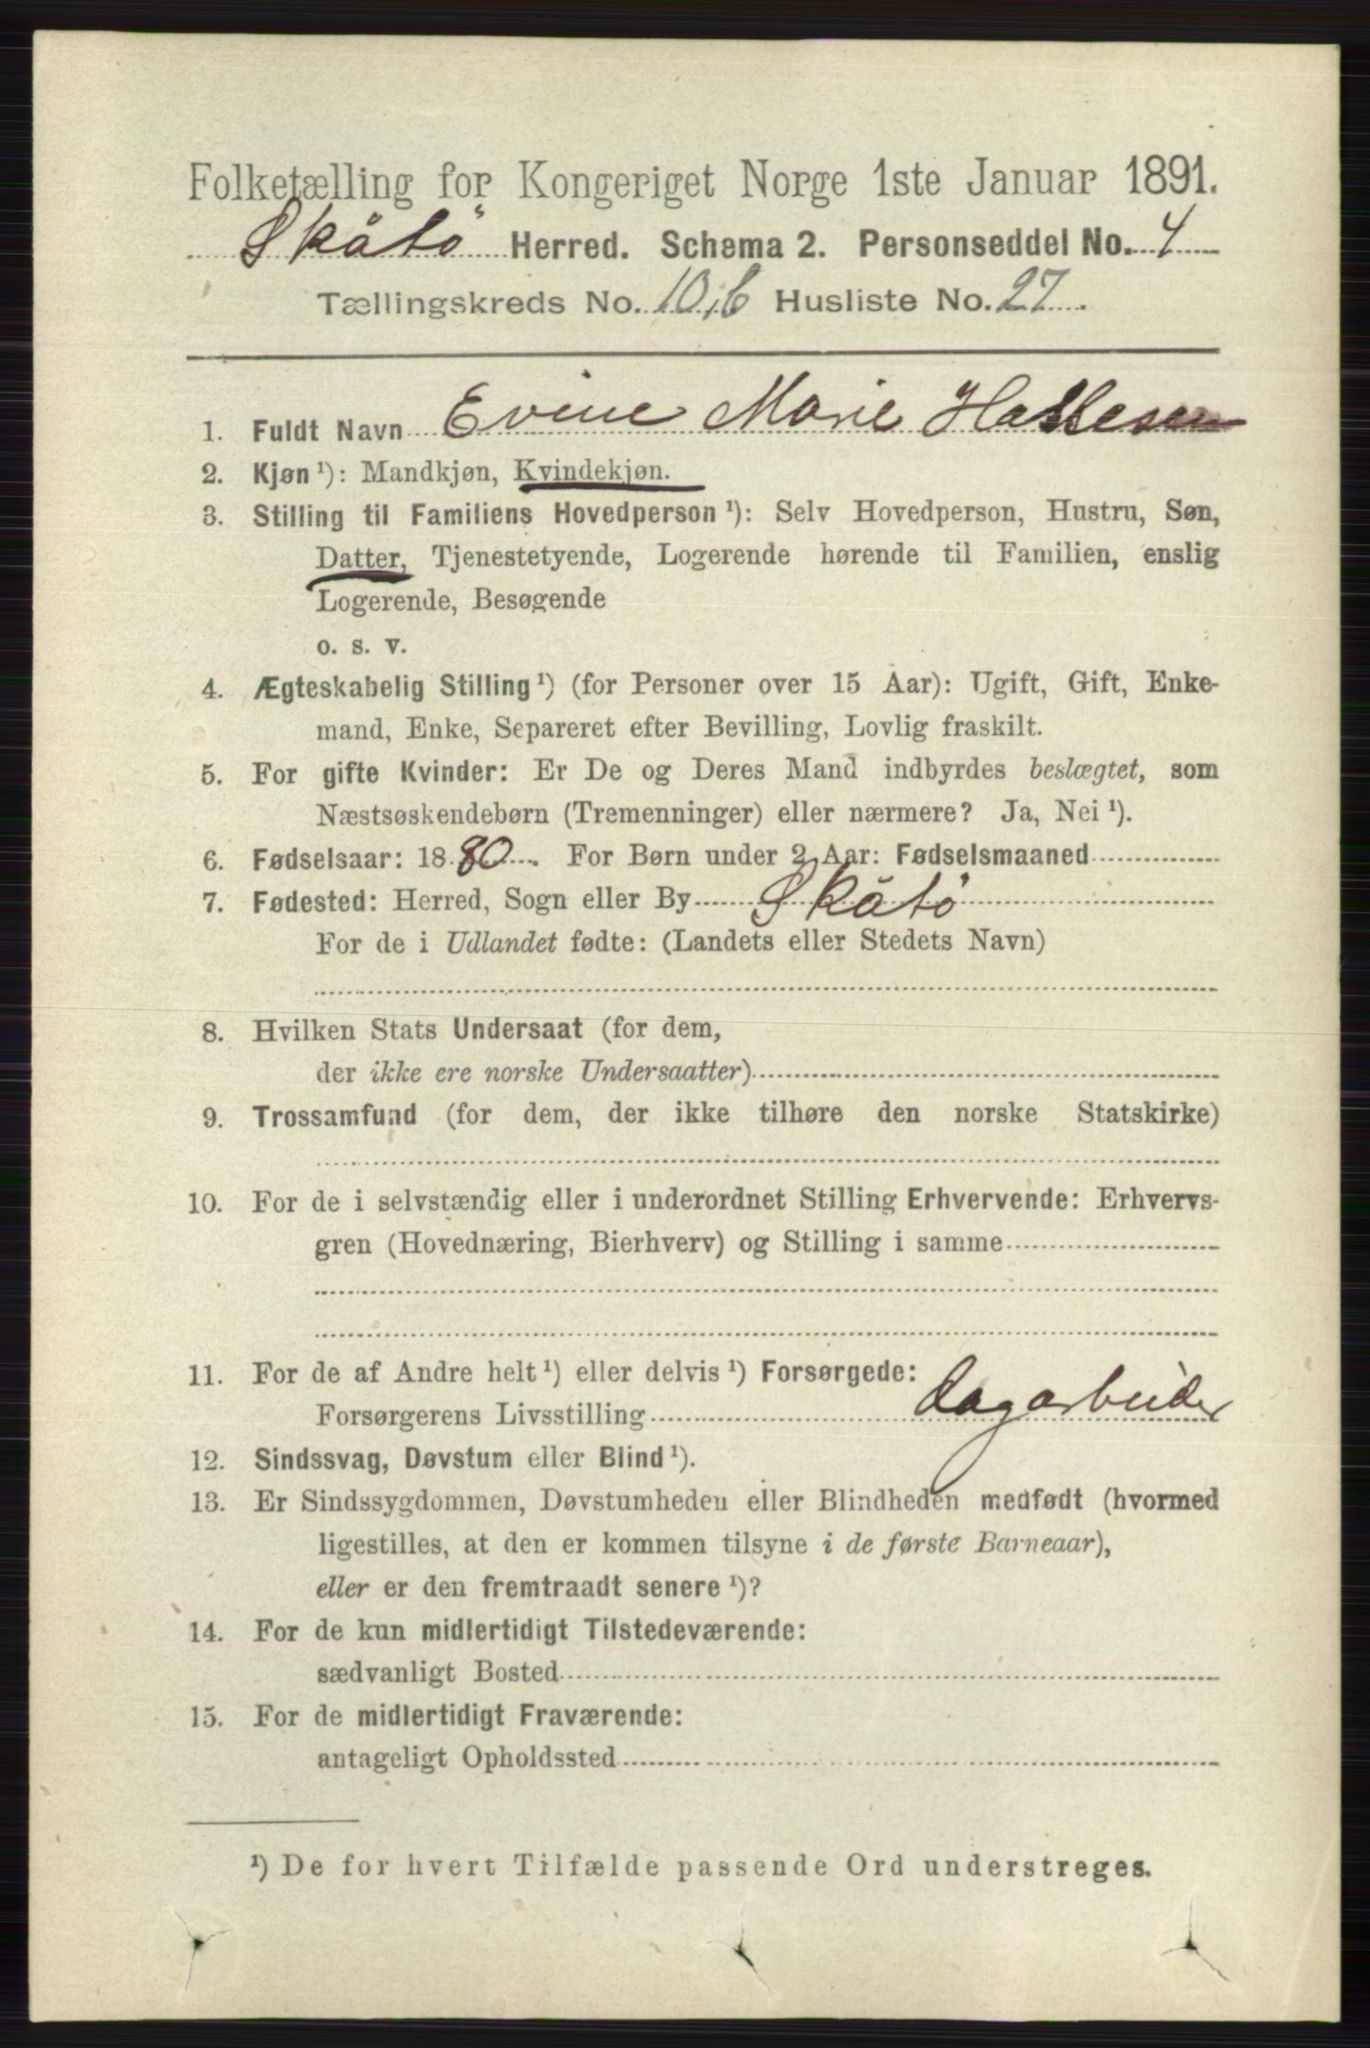 Folketælling for Kongeriget Norge 1ste Januar 1891.
Skåtö Herred. Schema 2. Personseddel No. 4
Tællingskreds No. 10,b Husliste No. 27
1. Fuldt Navn Evine Marie
2. Kjøn ¹): Mandkjøn, Kvindekjøn.
3. Stilling til Familiens Hovedperson ¹): Selv Hovedperson, Hustru, Søn,
Datter, Tjenestetyende, Logerende hørende til Familien, enslig
Logerende, Besøgende
o. s. v.
4. Ægteskabelig Stilling ¹) (for Personer over 15 Aar): Ugift, Gift, Enke-
mand, Enke, Separeret efter Bevilling, Lovlig fraskilt.
5. For gifte Kvinder: Er De og Deres Mand indbyrdes beslægtet, som
Næstsøskendebørn (Tremenninger) eller nærmere? Ja, Nei ¹).
6. Fødselsaar: 1880. For Børn under 2 Aar: Fødselsmaaned
7. Fødested: Herred, Sogn eller By Skåtö
For de i Udlandet fødte: (Landets eller Stedets Navn)
8. Hvilken Stats Undersaat (for dem,
der ikke ere norske Undersaatter)
9. Trossamfund (for dem, der ikke tilhøre den norske Statskirke)
10. For de i selvstændig eller i underordnet Stilling Erhvervende: Erhvervs-
gren (Hovednæring, Bierhverv) og Stilling i samme
11. For de af Andre helt ¹) eller delvis ¹) Forsørgede:
Forsørgerens Livsstilling dagarbeider
12. Sindssvag, Døvstum eller Blind ¹).
13. Er Sindssygdommen, Døvstumheden eller Blindheden medfødt (hvormed
ligestilles, at den er kommen tilsyne i de første Barneaar),
eller er den fremtraadt senere ¹)?
14. For de kun midlertidigt Tilstedeværende:
sædvanligt Bosted
15. For de midlertidigt Fraværende:
antageligt Opholdssted
¹) De for hvert Tilfælde passende Ord understreges.